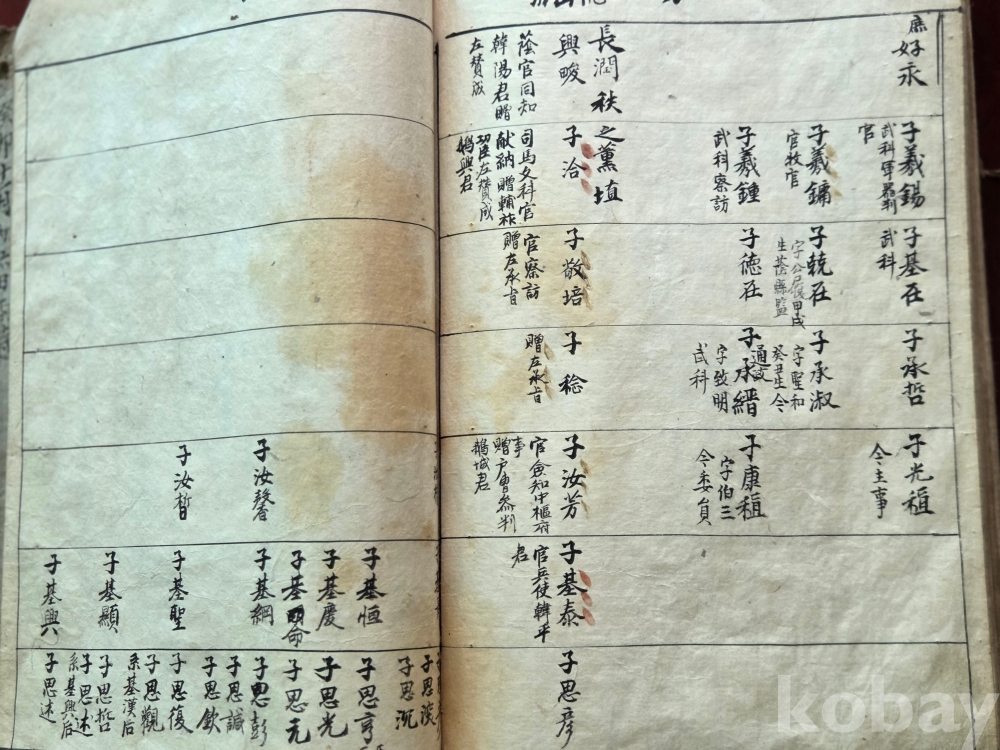 庶好永
長潤秩之薰埴
興畯
蔭官同知
韓陽君贈
左賛成
子羲錫
武科軍器判
官
子羲鏞
官牧官
子羲鍾
武科察訪
子洽
司馬文科官
献納贈輔祚
左賛成
興君
子基在
武科
子兢在
甲戌
生蔭縣監
子徳在
子敬培
官察訪
贈左承旨
子承哲
子承淑
字聖和
癸丑生今
通政
子承縉
字致明
武科
子稔
贈左承旨
子光稙
今主事
子康稙
字伯三
今委員
子汝芳
官僉知中樞府
事
贈戶曹參判
鵝城君
子汝馨
子汝晳
子基泰
官兵使韓平
君
子基恒
子基慶
子基命
子基綱
子基聖
子基顯
子基興
子思彦
子思淡
子思沉
子思亨
子思光
子思元
子思彭
子思誠
子思欽
子思復
子思觀
系基漢后
子思哲
子思述
系基興后
子思述
kobay